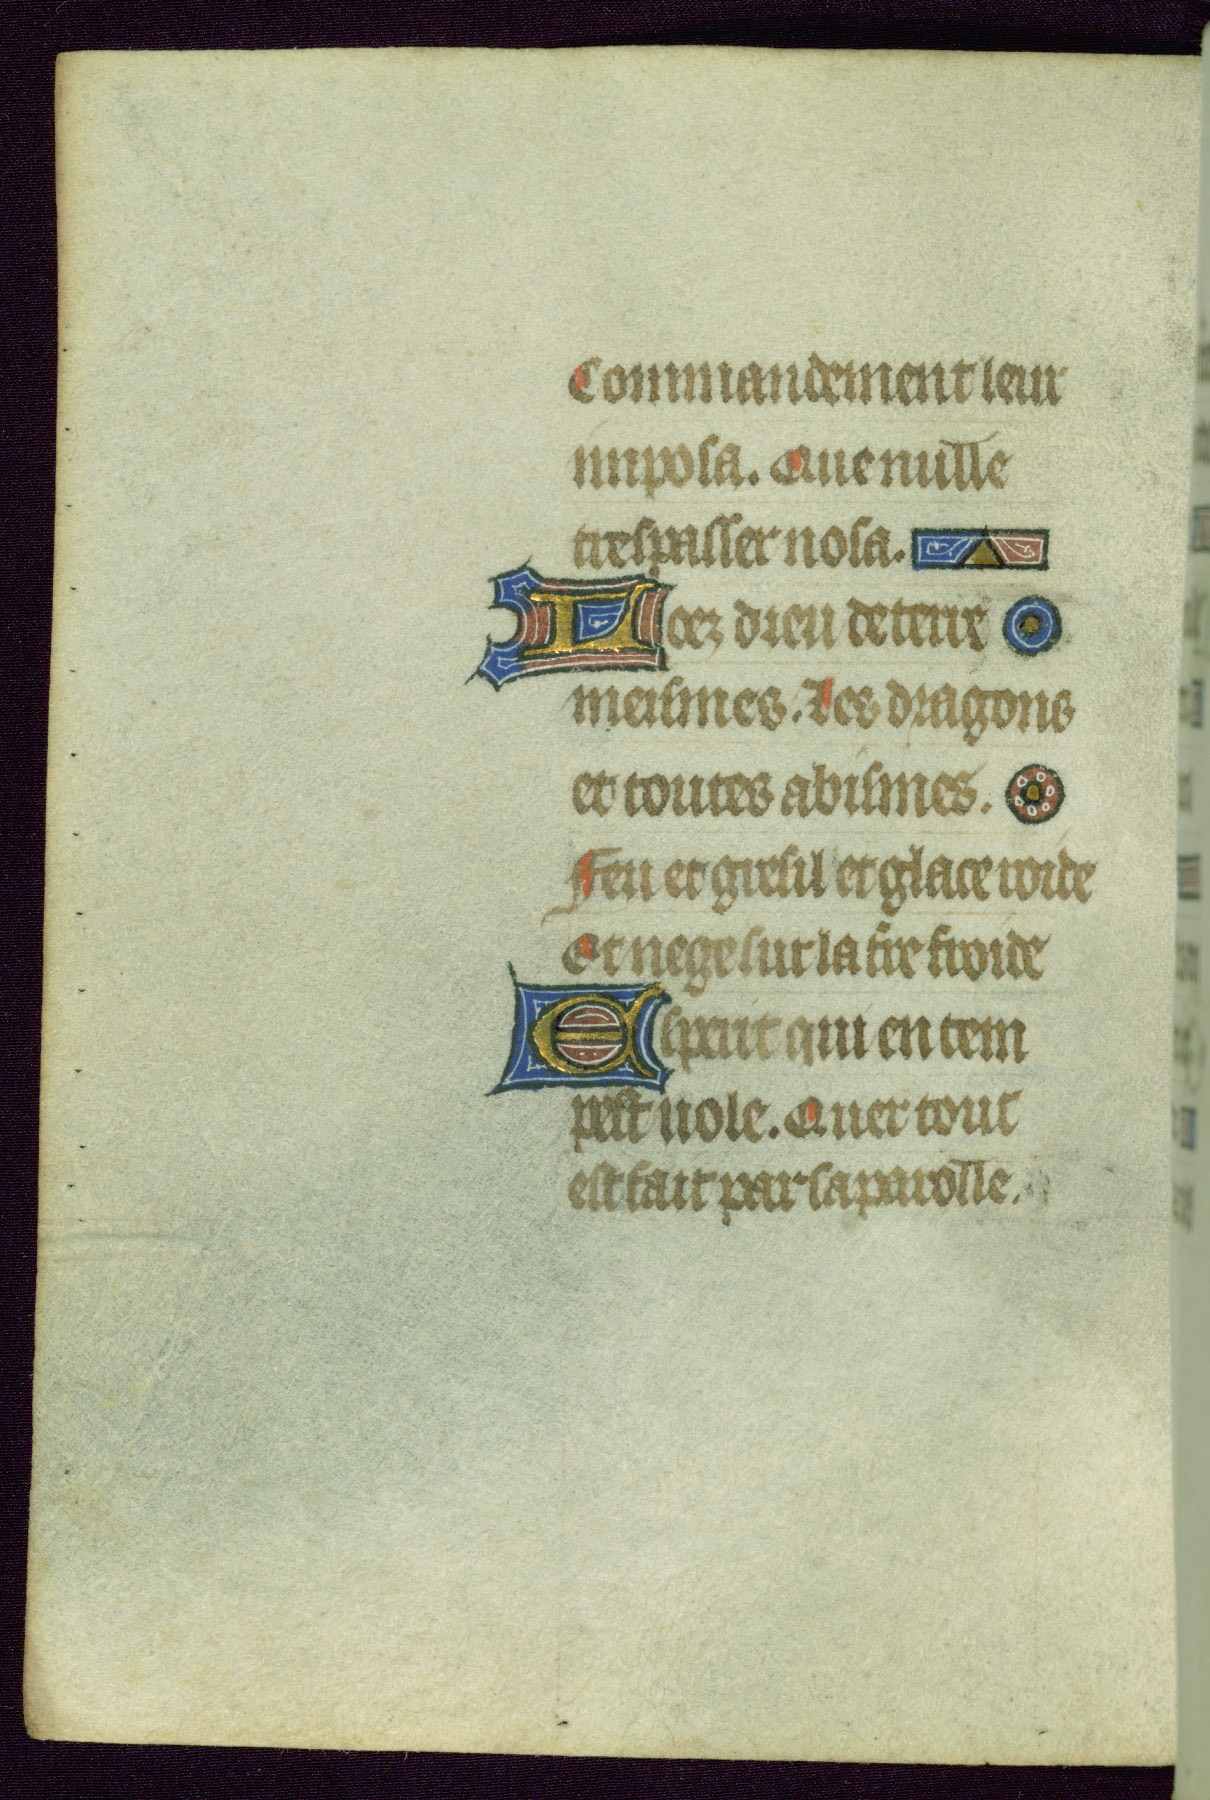 Commandement leur
imposa. Que nulle
trespasser nosa.
Loez dieu de terre
meismes. Les dragons
et toutes abismes.
Feu et gresil et glace roide
Et nege sur la t̄re froide
Esperit qui en tem
pest uole. Quer tout
est fait par sa parolle.